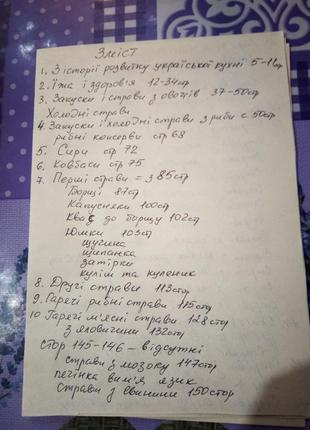 Зміст
1. З історії розвитку української кухні 5-11стр
2. Їжа і здоров'я 12-34стр
3. Закуски і страви з овочів 37-50стр
Холодні страви
4. Закуски і холодні страви з риби с 50стр
рибні консерви стр 68
5. Сири стр 72
6. Ковбаси стр 75
7. Перші страви = з 85стр
Борщі 87стр
Капусняки 100стр
Квас до борщу 102стр
Юшки 103стр
щучина
щипанка
затірки
куліш та кулешик
8. Другі страви 113стор
9. Гарячі рибні страви 115стор
10 Гарячі м'ясні страви 128стор
з яловичини 132стор
стор 145-146 – відсутні
страви з мозоку 147стор
печінка вим'я язик
страви з свинини 150стор